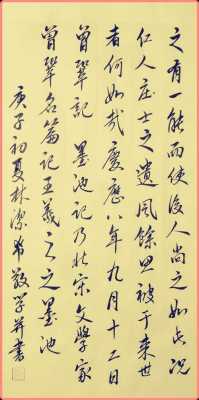 之有一能而使後人尚之如此況
仁人庄士之遺風餘思被于来世
者何如哉慶應八年九月十二日
曾鞏記 墨池記乃北宋文學家
曾鞏名篇記王羲之之墨池
庚子初夏林潔希敬学并書